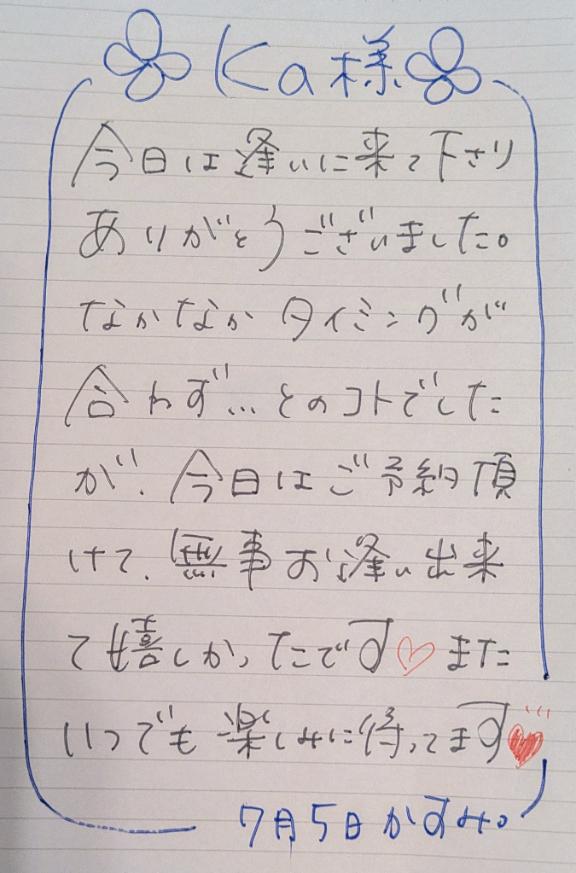 Ka様
今日は逢いに来て下さり
ありがとうございました。
なかなかタイミングが
合わず…とのコトでした
が、今日はご予約頂
けて、無事お逢い出来
て嬉しかったです♡また
いつでも楽しみに待ってます♥
7月5日かすみ。